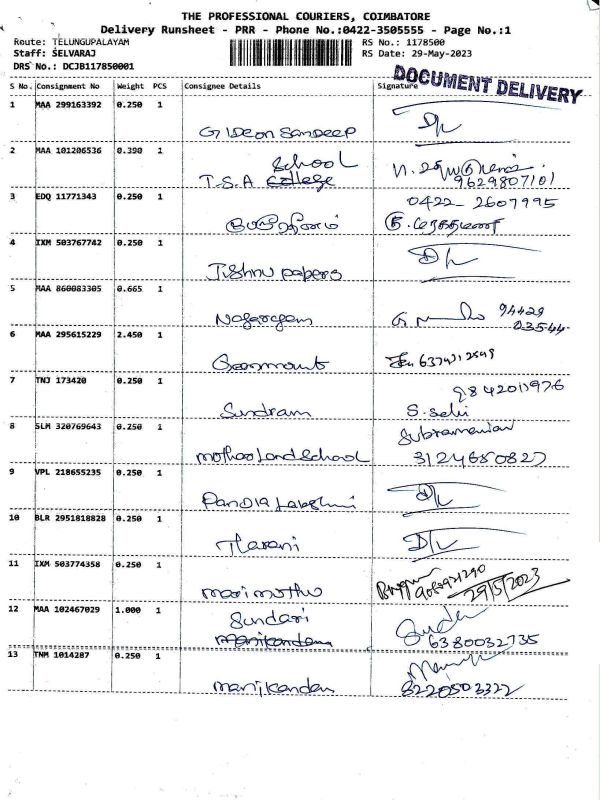 THE PROFESSIONAL COURIERS, COIMBATORE
Delivery Runsheet - PRR - Phone No.:0422-3505555 - Page No.:1
Route: TELUNGUPALAYAM RS No.: 1178500
Staff: SELVARAJ RS Date: 29-May-2023
DRS No.: DCJB117850001
DOCUMENT DELIVERY
S No. Consignment No Weight PCS Consignee Details Signature
1 MAA 299163392 0.250 1
GIDEON SANDEEP D/L
2 MAA 101206536 0.390 1
School
T.S.A College 9629807101
3 EDQ 11771343 0.250 1 0422-2607995
4 IXM 503767742 0.250 1 D/L
Jishnu papers
5 MAA 860083305 0.665 1
Nagarajan 94429
03544
6 MAA 295615229 2.450 1
7 TNJ 173420 0.250 1 9842011976
Sundram S. Selvi
8 SLM 320769643 0.250 1 Subramanian
School 3124650827
9 VPL 218655235 0.250 1
PANDIA Lakshmi D/L
10 BLR 2951818828 0.250 1
Tharani D/L
11 IXM 503774358 0.250 1
marimuthu 29/5/2023
12 MAA 102467029 1.000 1
Sundari
Manikandan 6380032735
13 TNM 1014287 0.250 1
manikandan 8220503322